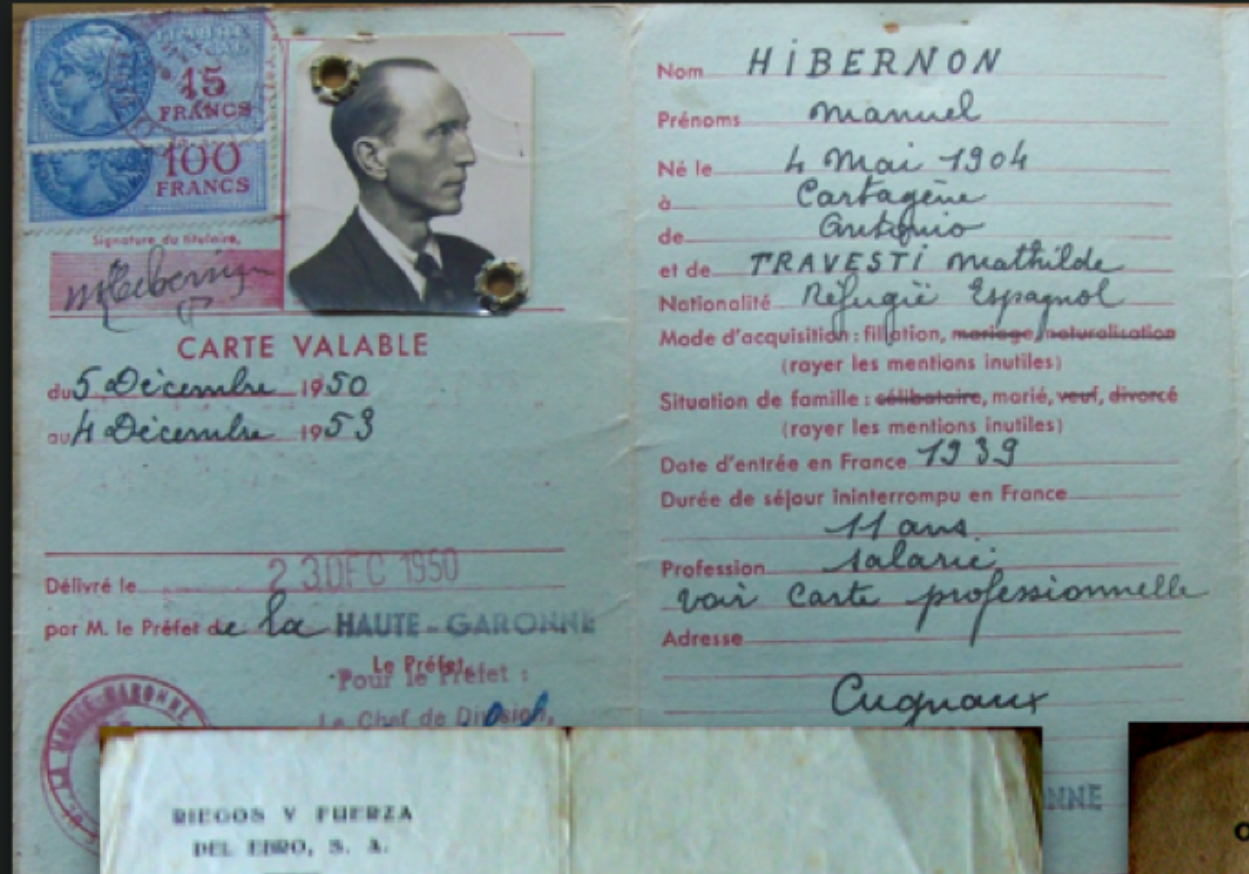 TIMBRE
FISCAL
15
FRANCS
100
FRANCS
Signature du titulaire,
CARTE VALABLE
du 5 Décembre 1950
au 4 Décembre 1953
Délivré le 23 DEC 1950
par M. le Préfet de la HAUTE-GARONNE
Le Préfet,
Pour le Préfet :
Le Chef de Division,
LA HAUTE-GARONNE
Nom HIBERNON
Prénoms Manuel
Né le 4 Mai 1904
à Cartagène
de Antonio
et de TRAVESTI Mathilde
Nationalité Réfugié Espagnol
Mode d'acquisition : filiation, mariage, naturalisation
(rayer les mentions inutiles)
Situation de famille : célibataire, marié, veuf, divorcé
(rayer les mentions inutiles)
Date d'entrée en France 1939
Durée de séjour ininterrompu en France
11 ans
Profession salarié
voir carte professionnelle
Adresse
Cugnaux
NNE
RIEGOS Y FUERZA
DEL EBRO, S. A.